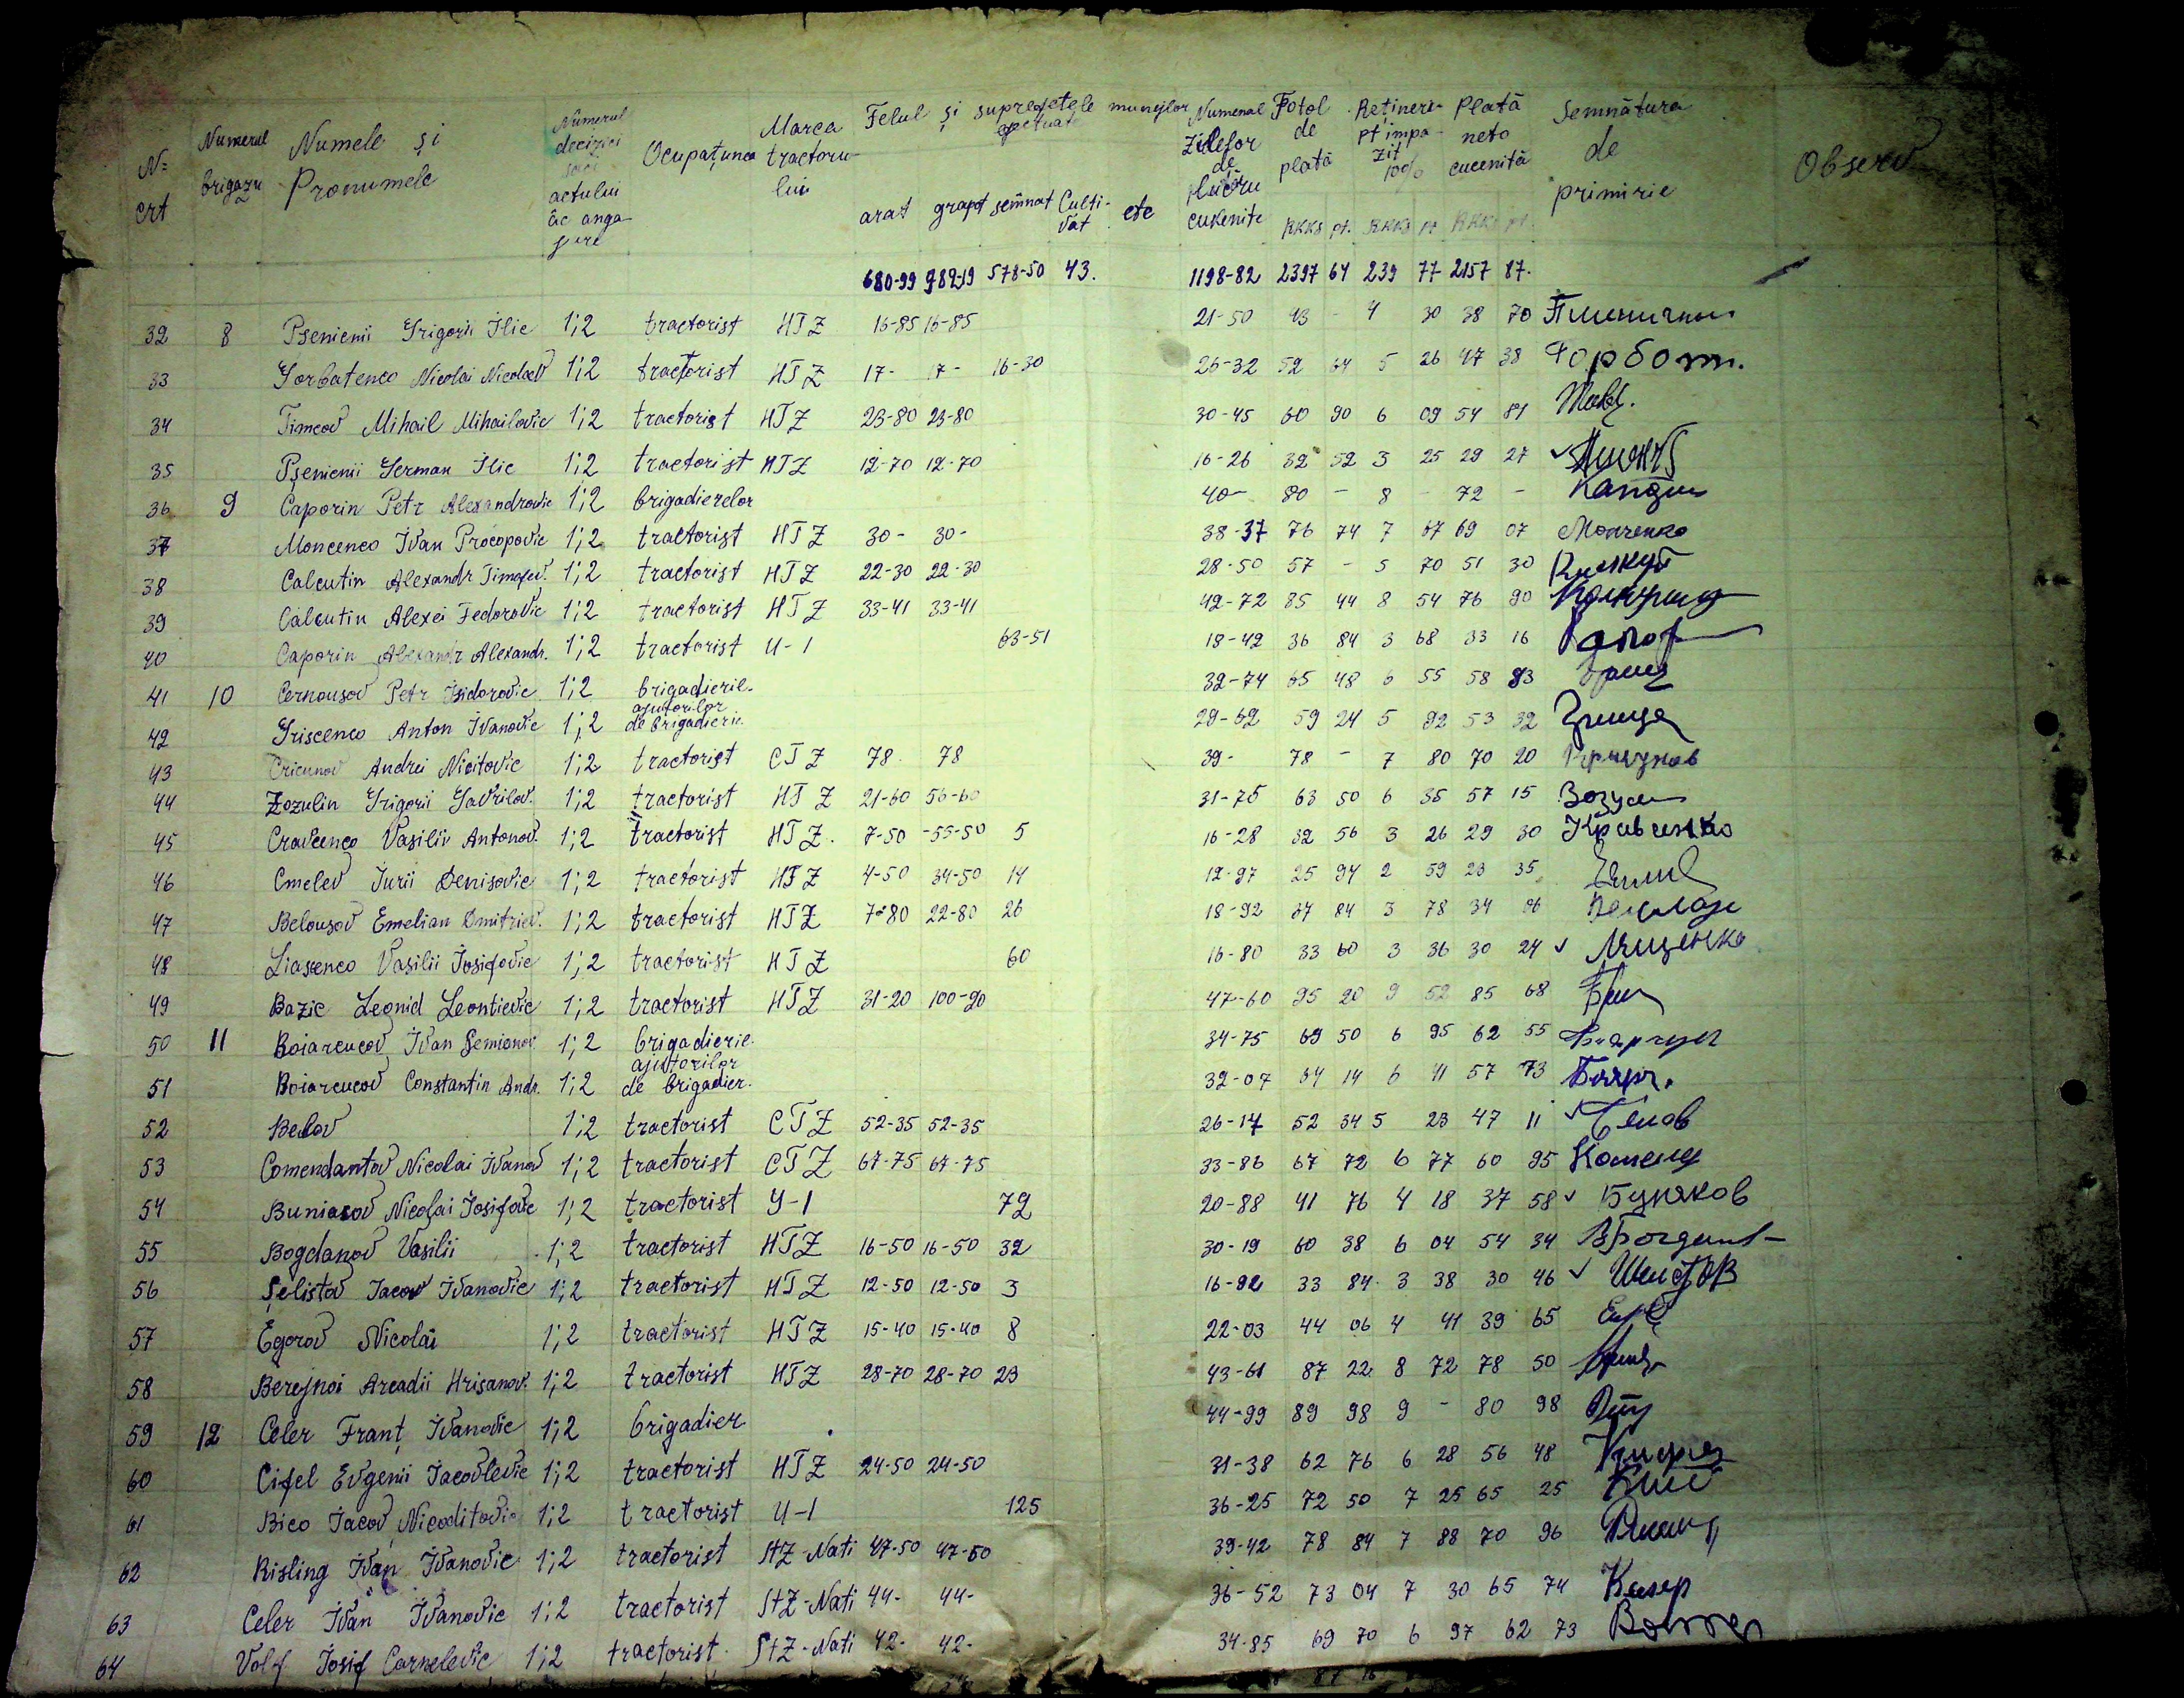 Nº crt Numerul brigazii Numele și Pronumele Numerul deciziei actului ac anga jure Ocupațunea Marca tractoru lui Felul și suprafetele muncilor efectuate Numenal Zidelor de plucru cukenite Total de plată Rețineri pt impa- zit 10% Plată neto cucenită Semnătura de primirie Observ
arat grapat semnat Culti-vat etc RKKS pt. RKKS pt RKKS pt.
680-99 989-19 578-50 43. 1198-82 2397 64 239 77 2157 87.
32 8 Psenicnii Grigorii Ilic 1;2 tractorist HTZ 16-85 16-85 21-50 43 - 4 30 38 70
33 Gorbatenco Nicolai Nicolaev 1;2 tractorist HTZ 17- 17- 16-30 26-32 52 64 5 26 47 38 Форбот.
34 Timcov Mihail Mihailovic 1;2 tractorist HTZ 23-80 23-80 30-45 60 90 6 09 54 81
35 Psenicnii German Ilic 1;2 tractorist HTZ 12-70 12-70 16-26 32 52 3 25 29 27 ✓
36 9 Caporin Petr Alexandrovic 1;2 brigadierelor 40- 80 - 8 - 72 -
37 Moncenco Ivan Procopovic 1;2 tractorist HTZ 30- 30- 38-37 76 74 7 67 69 07 Монченко
38 Calcutin Alexandr Timofev. 1;2 tractorist HTZ 22-30 22-30 28-50 57 - 5 70 51 30
39 Calcutin Alexei Fedorovic 1;2 tractorist HTZ 33-41 33-41 42-72 85 44 8 54 76 90
40 Caporin Alexandr Alexandr. 1;2 tractorist U-1 63-51 18-42 36 84 3 68 33 16
41 10 Cernousov Petr Isidorovic 1;2 brigadieril. 32-74 65 48 6 55 58 93
42 Griscenco Anton Ivanovic 1;2 ajutorilor de brigadierii 29-62 59 24 5 92 53 32
43 Cricunov Andrei Nicitovic 1;2 tractorist CTZ 78. 78 39- 78 - 7 80 70 20
44 Zozulin Grigorii Gavrilov. 1;2 tractorist HTZ 21-60 56-60 31-75 63 50 6 35 57 15
45 Cravcenco Vasiliv Antonov. 1;2 tractorist HTZ. 7-50 -55-50 5 16-28 32 56 3 26 29 30
46 Cmelev Iurii Denisovic 1;2 tractorist HTZ 4-50 34-50 14 12-97 25 94 2 59 23 35
47 Belousov Emelian Dmitriev. 1;2 tractorist HTZ 7-80 22-80 26 18-92 37 84 3 78 34 06
48 Liascenco Vasilii Iosifovic 1;2 tractorist HTZ 60 16-80 33 60 3 36 30 24 ✓ Лященко
49 Bazic Leonid Leontievic 1;2 tractorist HTZ 31-20 100-90 47-60 95 20 9 52 85 68
50 11 Boiarcucov Ivan Semionov. 1;2 brigadieril. 34-75 69 50 6 95 62 55
51 Boiarcucov Constantin Andr. 1;2 ajutorilor de brigadier. 32-07 64 14 6 41 57 73 Бояр.
52 Belov 1;2 tractorist CTZ 52-35 52-35 26-17 52 34 5 23 47 11 ✓ Белов
53 Comendantov Nicolai Ivanov 1;2 tractorist CTZ 67-75 67-75 33-86 67 72 6 77 60 95 Коменд
54 Buniacov Nicolai Iosifovic 1;2 tractorist Y-1 72 20-88 41 76 4 18 37 58 ✓ Буняков
55 Bogdanov Vasilii 1;2 tractorist HTZ 16-50 16-50 32 30-19 60 38 6 04 54 34
56 Selistov Iacov Ivanovic 1;2 tractorist HTZ 12-50 12-50 3 16-92 33 84 3 38 30 46 ✓
57 Egorov Nicolai 1;2 tractorist HTZ 15-40 15-40 8 22-03 44 06 4 41 39 65
58 Berejnoi Arcadii Hrisanov. 1;2 tractorist HTZ 28-70 28-70 23 43-61 87 22 8 72 78 50
59 12 Celer Franț Ivanovic 1;2 brigadier 44-99 89 98 9 - 80 98
60 Cifel Evgenii Iacovlevic 1;2 tractorist HTZ 24-50 24-50 31-38 62 76 6 28 56 48
61 Bico Iacov Nicoditovic 1;2 tractorist U-1 125 36-25 72 50 7 25 65 25
62 Risling Ivan Ivanovic 1;2 tractorist StZ-Nati 47-50 47-50 39-42 78 84 7 88 70 96
63 Celer Ivan Ivanovic 1;2 tractorist StZ-Nati 44- 44- 36-52 73 04 7 30 65 74 Келер
64 Volf Iosif Carnelevic 1;2 tractorist StZ-Nati 42- 42- 34-85 69 70 6 97 62 73